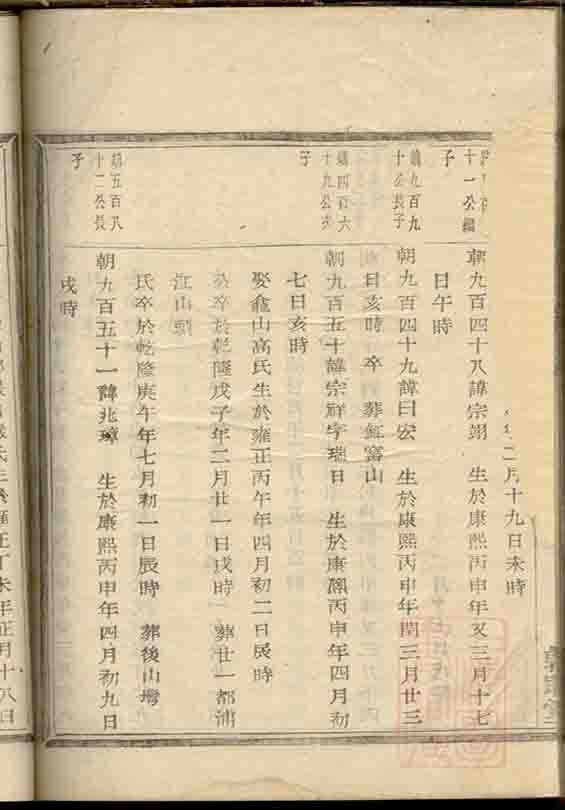 二月十九日未時
十一公
子
朝九百四十八諱宗翊　生於康熙丙申年又三月十七
日午時
朝九百九
十公長子
朝九百四十九諱曰宏　生於康熙丙申年閏三月廿三
日亥時　卒　葬紅富山
朝四百六
十九公次
子
朝九百五十諱宗祥字瑞日　生於康熙丙申年四月初
七日亥時
娶龕山高氏生於雍正丙午年四月初二日辰時
於卒於乾隆戊子年二月廿一日戌時　葬廿一都浦
江山
氏卒於乾隆庚午年七月初一日辰時　葬後山塆
朝五百八
十二公長
子
朝九百五十一諱兆璋　生於康熙丙申年四月初九日
戌時
氏生於雍正丁未年正月十八日